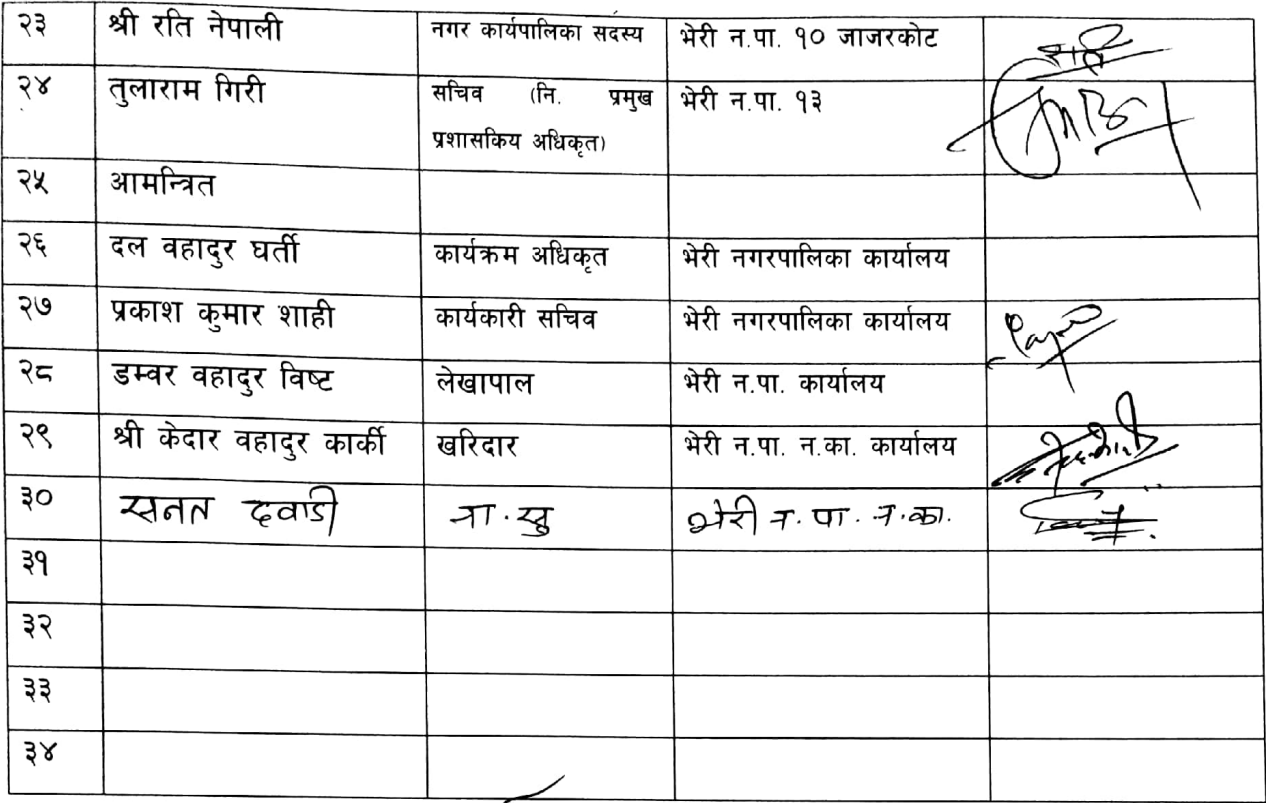 २३ श्री रति नेपाली नगर कार्यपालिका सदस्य भेरी न.पा. १० जाजरकोट
२४ तुलाराम गिरी सचिव (नि. प्रमुख भेरी न.पा. १३
प्रशासकिय अधिकृत)
२५ आमन्त्रित
२६ दल वहादुर घर्ती कार्यक्रम अधिकृत भेरी नगरपालिका कार्यालय
२७ प्रकाश कुमार शाही कार्यकारी सचिव भेरी नगरपालिका कार्यालय
२८ डम्वर वहादुर विष्ट लेखापाल भेरी न.पा. कार्यालय
२९ श्री केदार वहादुर कार्की खरिदार भेरी न.पा. न.का. कार्यालय
३० सनत दवाडी ना.सु भेरी न.पा.न.का.
३१
३२
३३
३४